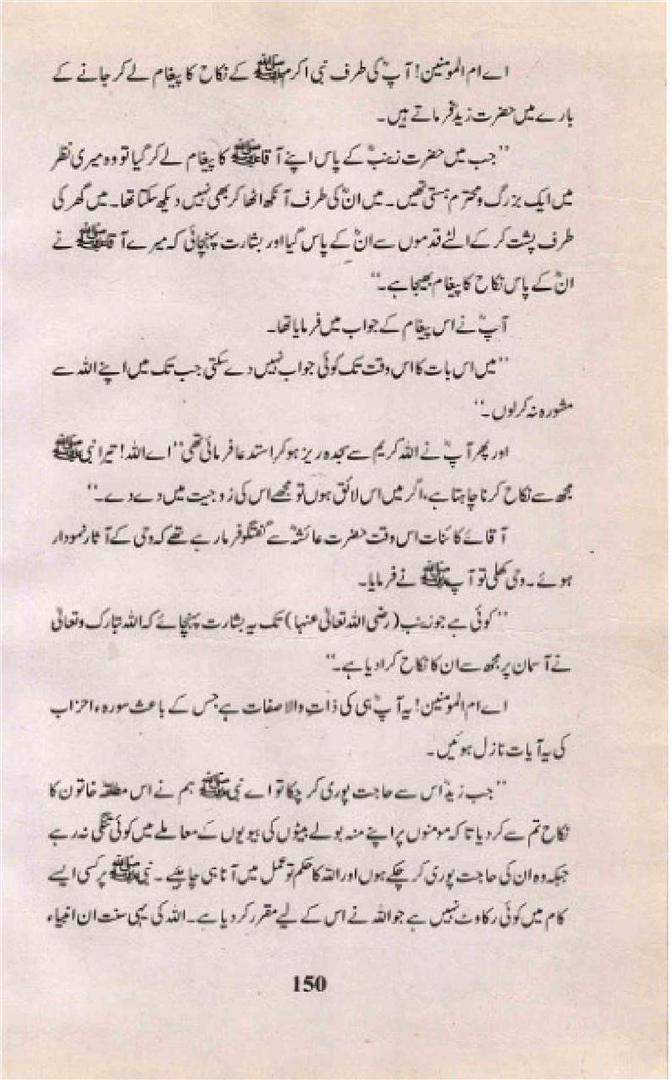 اے ام المؤمنین! آپؓ کی طرف نبی اکرم ﷺ کے نکاح کا پیغام لے کر جانے کے
بارے میں حضرت زیدؓ فرماتے ہیں۔
”جب میں حضرت زینبؓ کے پاس اپنے آقا ﷺ کا پیغام لے کر گیا تو وہ میری نظر
میں ایک بزرگ و محترم ہستی تھیں۔ میں انؓ کی طرف آنکھ اٹھا کر بھی نہیں دیکھ سکتا تھا۔ میں گھر کی
طرف پشت کر کے الٹے قدموں سے انؓ کے پاس گیا اور بشارت پہنچائی کہ میرے آقا ﷺ نے
انؓ کے پاس نکاح کا پیغام بھیجا ہے۔“
آپؓ نے اس پیغام کے جواب میں فرمایا تھا۔
”میں اس بات کا اس وقت تک کوئی جواب نہیں دے سکتی جب تک میں اپنے اللہ سے
مشورہ نہ کر لوں۔“
اور پھر آپؓ نے اللہ کریم سے سجدہ ریز ہو کر استدعا فرمائی تھی ”اے اللہ! تیرا نبی ﷺ
مجھ سے نکاح کرنا چاہتا ہے، اگر میں اس لائق ہوں تو مجھے اس کی زوجیت میں دے دے۔“
آقائے کائنات اس وقت حضرت عائشہؓ سے گفتگو فرما رہے تھے کہ وحی کے آثار نمودار
ہوئے۔ وحی کھلی تو آپ ﷺ نے فرمایا۔
”کوئی ہے جو زینب (رضی اللہ تعالیٰ عنہا) تک یہ بشارت پہنچائے کہ اللہ تبارک و تعالیٰ
نے آسمان پر مجھ سے ان کا نکاح کرا دیا ہے۔“
اے ام المؤمنین! یہ آپؓ ہی کی ذاتِ والا صفات ہے جس کے باعث سورہء احزاب
کی یہ آیات نازل ہوئیں۔
”جب زیدؓ اس سے حاجت پوری کر چکا تو اے نبی ﷺ ہم نے اس مطلقہ خاتون کا
نکاح تم سے کر دیا تا کہ مومنوں پر اپنے منہ بولے بیٹوں کی بیویوں کے معاملے میں کوئی تنگی نہ رہے
جبکہ وہ ان کی حاجت پوری کر چکے ہوں اور اللہ کا حکم تو عمل میں آنا ہی چاہیے۔ نبی ﷺ پر کسی ایسے
کام میں کوئی رکاوٹ نہیں ہے جو اللہ نے اس کے لیے مقرر کر دیا ہے۔ اللہ کی یہی سنت ان انبیاء
150